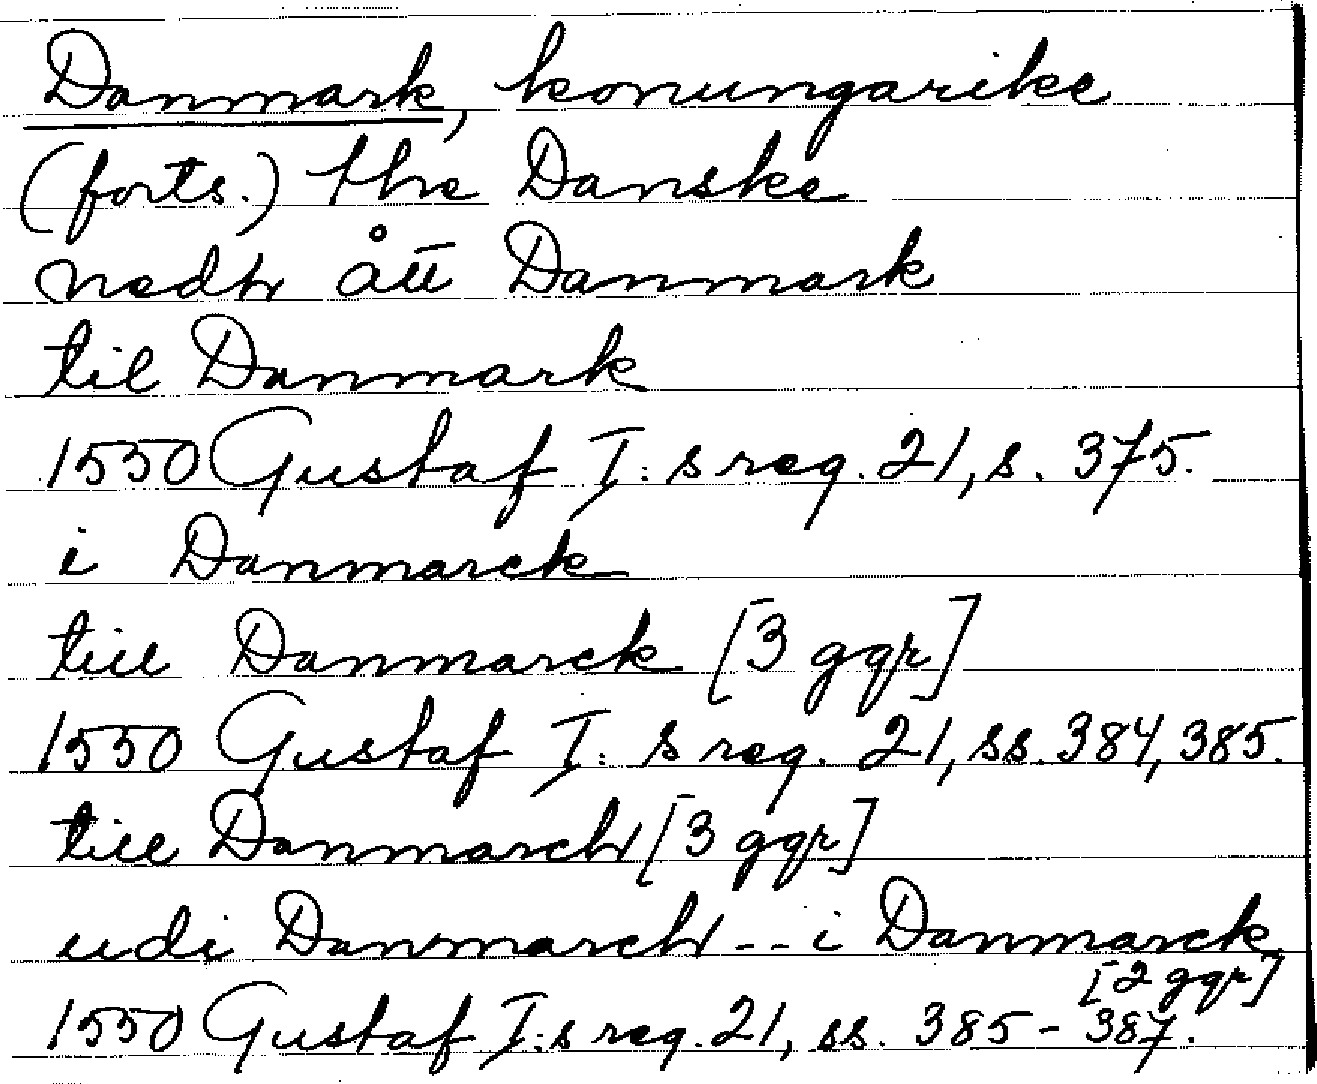 Danmark, konungarike
(forts.) the Danske
nedh ått Danmark
til Danmark
1550 Gustaf I:s reg. 21, s. 375.
i Danmarck
till Danmarck [3 ggr]
1550 Gustaf I:s reg. 21, ss. 384, 385.
till Danmarch [3 ggr]
udi Danmarch -- i Danmarck
[2 ggr]
1550 Gustaf I:s reg. 21, ss. 385-387.